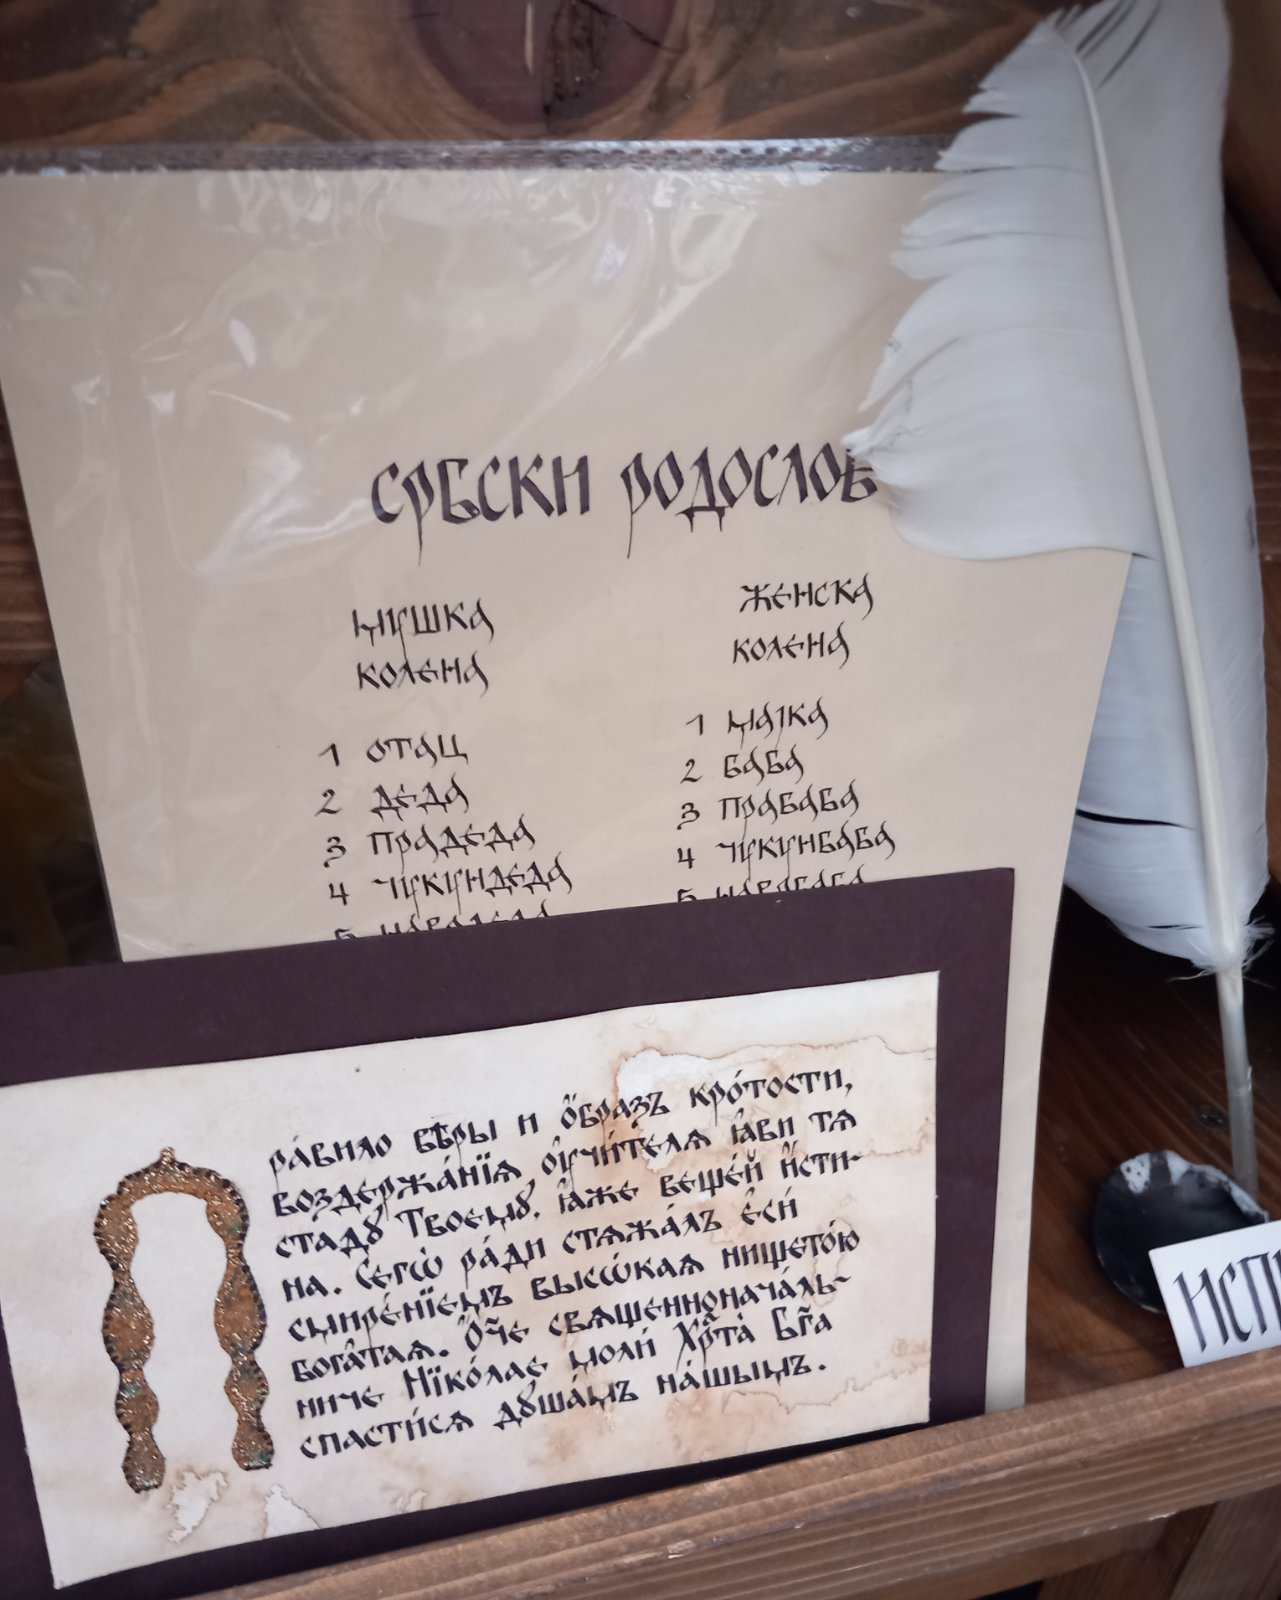 СРБСКИ РОДОСЛОВ
МУШКА
КОЛЕНА
1 ОТАЦ
2 ДЕДА
3 ПРАДЕДА
4 ЧУКУНДЕДА
5 НАВРДЕДА
ЖЕНСКА
КОЛЕНА
1 МАЈКА
2 БАБА
3 ПРАБАБА
4 ЧУКУНБАБА
5
Пра́вило вѣ́ры и ѻ҆́бразъ кро́тости,
воздержа́нїѧ ᲂу҆чи́телѧ ꙗ҆ви́ тѧ
стадꙋ Твоемꙋ̀. ꙗ҆́же веще́й и҆́сти-
на. Сегѡ̀ ра́ди стѧжа́лъ є҆сѝ
смире́нїемъ высѡ́каѧ нището́ю
бога́таѧ. Ѻ҆́ч҃е свѧщеннонача́ль-
ниче Нїко́лае молѝ Хрⷭ҇та̀ Бг҃а
спасти́сѧ дꙋша́мъ на́шымъ.